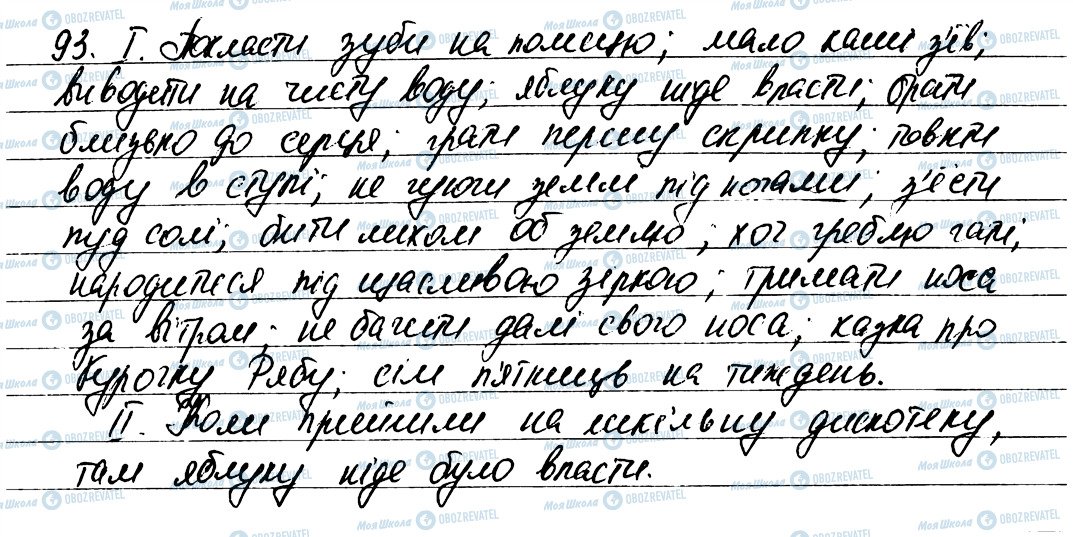 93. І. Покласти зуби на полицю; мало каші з'їв;
виводити на чисту воду; яблуку ніде впасти; брати
близько до серця; грати першу скрипку; товкти
воду в ступі; не чуючи землі під ногами; з'їсти
пуд солі; бити лихом об землю; хоч греблю гати;
народитися під щасливою зіркою; тримати носа
за вітром; не бачити далі свого носа; казка про
Курочку Рябу; сім п'ятниць на тиждень.
ІІ. Коли прийшли на шкільну дискотеку,
там яблуку ніде було впасти.